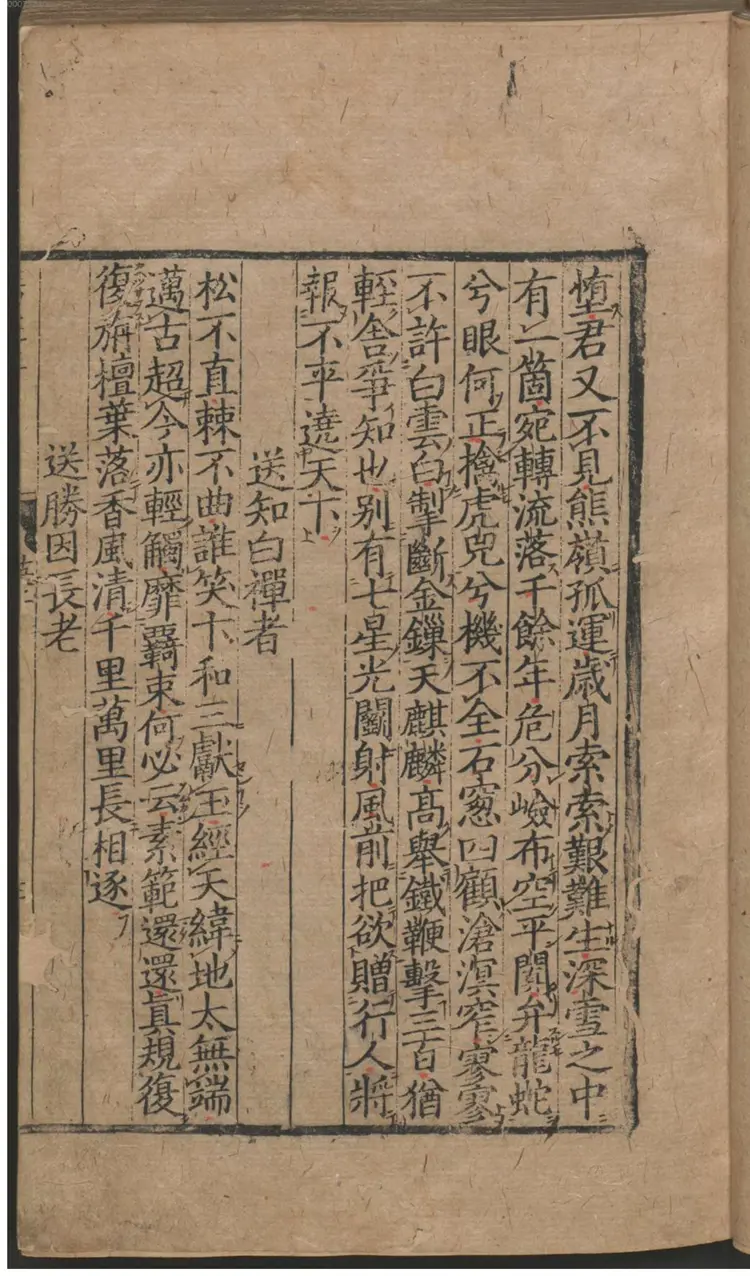 墮君又不見熊嶺孤運歳月索索艱難生深雪之中
有一箇宛轉流落千餘年危分嶮布空平闊弁龍蛇
兮眼何正擒虎兕兮機不全石窓凹顧滄溟窄寥寥
不許白雲白掣斷金鏁天麒麟高舉鐵鞭擊三百猶
輕舍爭知也別有七星光闌射風前把欲贈行人將
報不平遶天下
送知白禪者
松不直棘不曲誰笑卞和三獻玉經天緯地太無端
邁古超今亦輕觸靡覊束何必云素範還還眞規復
復旃檀葉落香風清千里萬里長相逐
送勝因長老